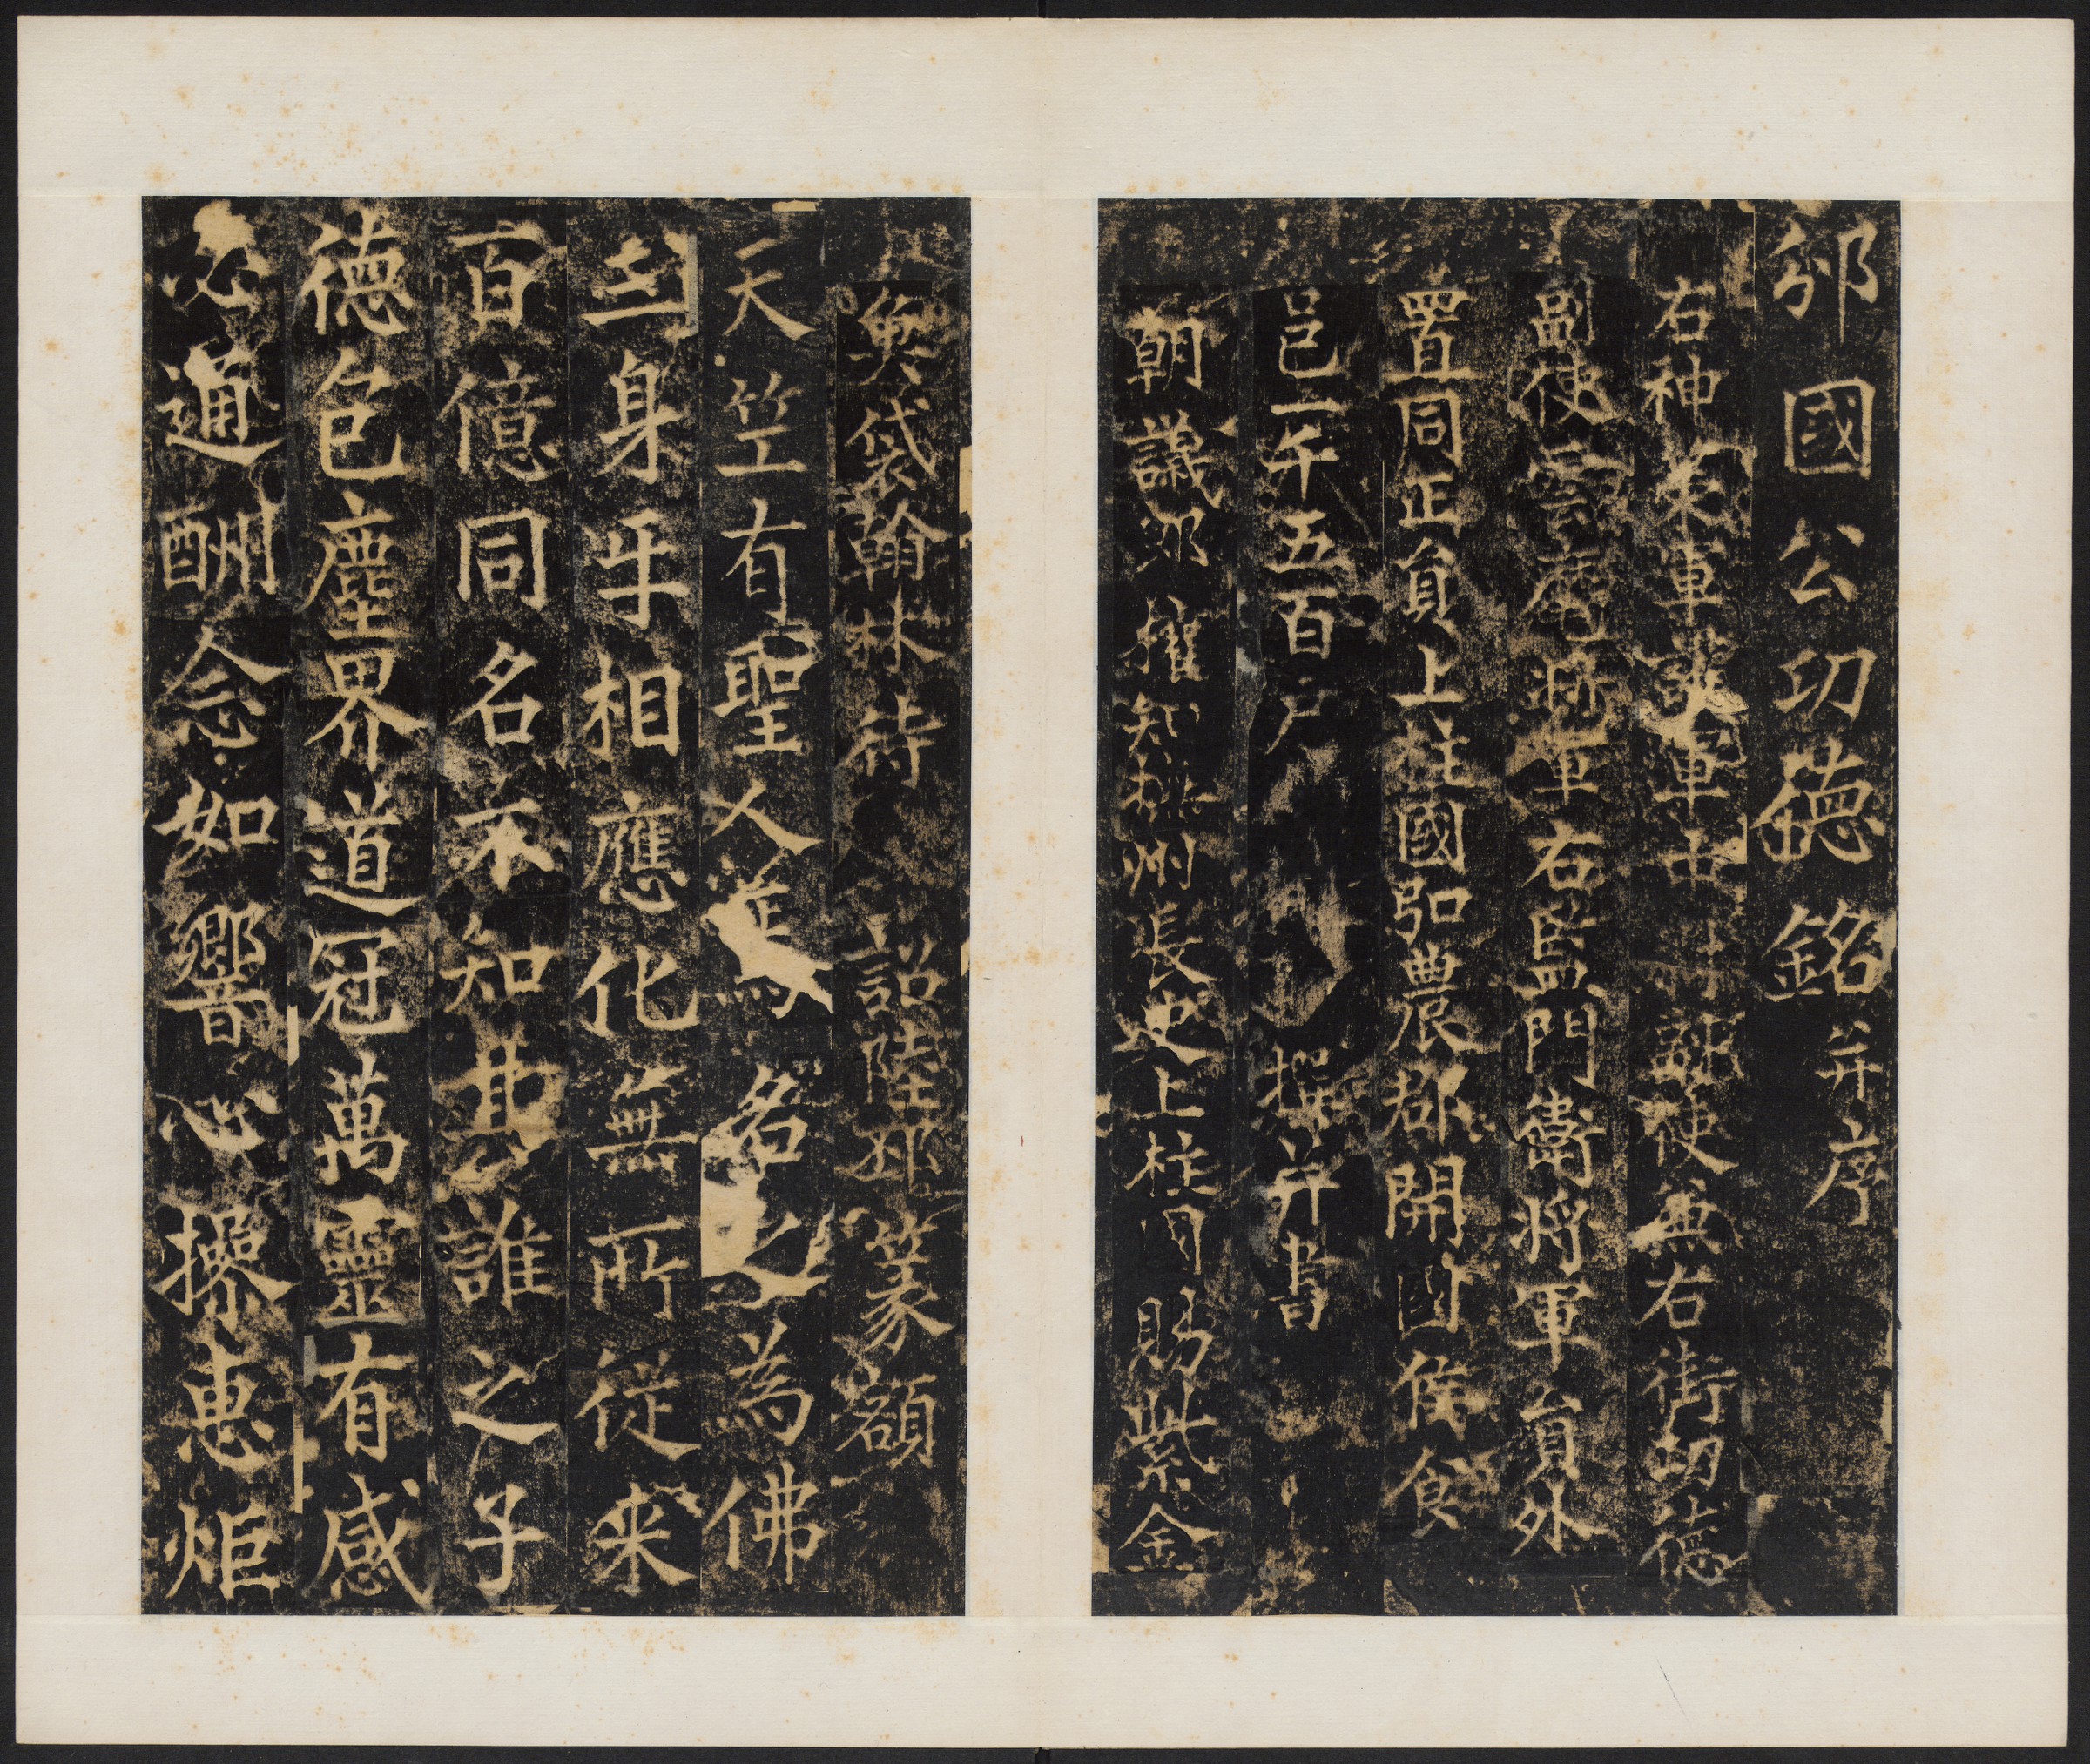 邠國公功德銘并序
右神策軍護軍中 副使兼右街功德
副使雲麾將軍右監門衛將軍員外
置同正員上柱國弘農郡開國侯食
邑一千五百戶 撰并書
朝議郎權知撫州長史上柱國賜紫金
魚袋翰林待 詔陸邳篆額
天竺有聖人焉名之為佛
三身牙相應化無所從来
百億同名不知其誰之子
德包塵界道冠萬靈有感
必通酬念如響心操惠炬